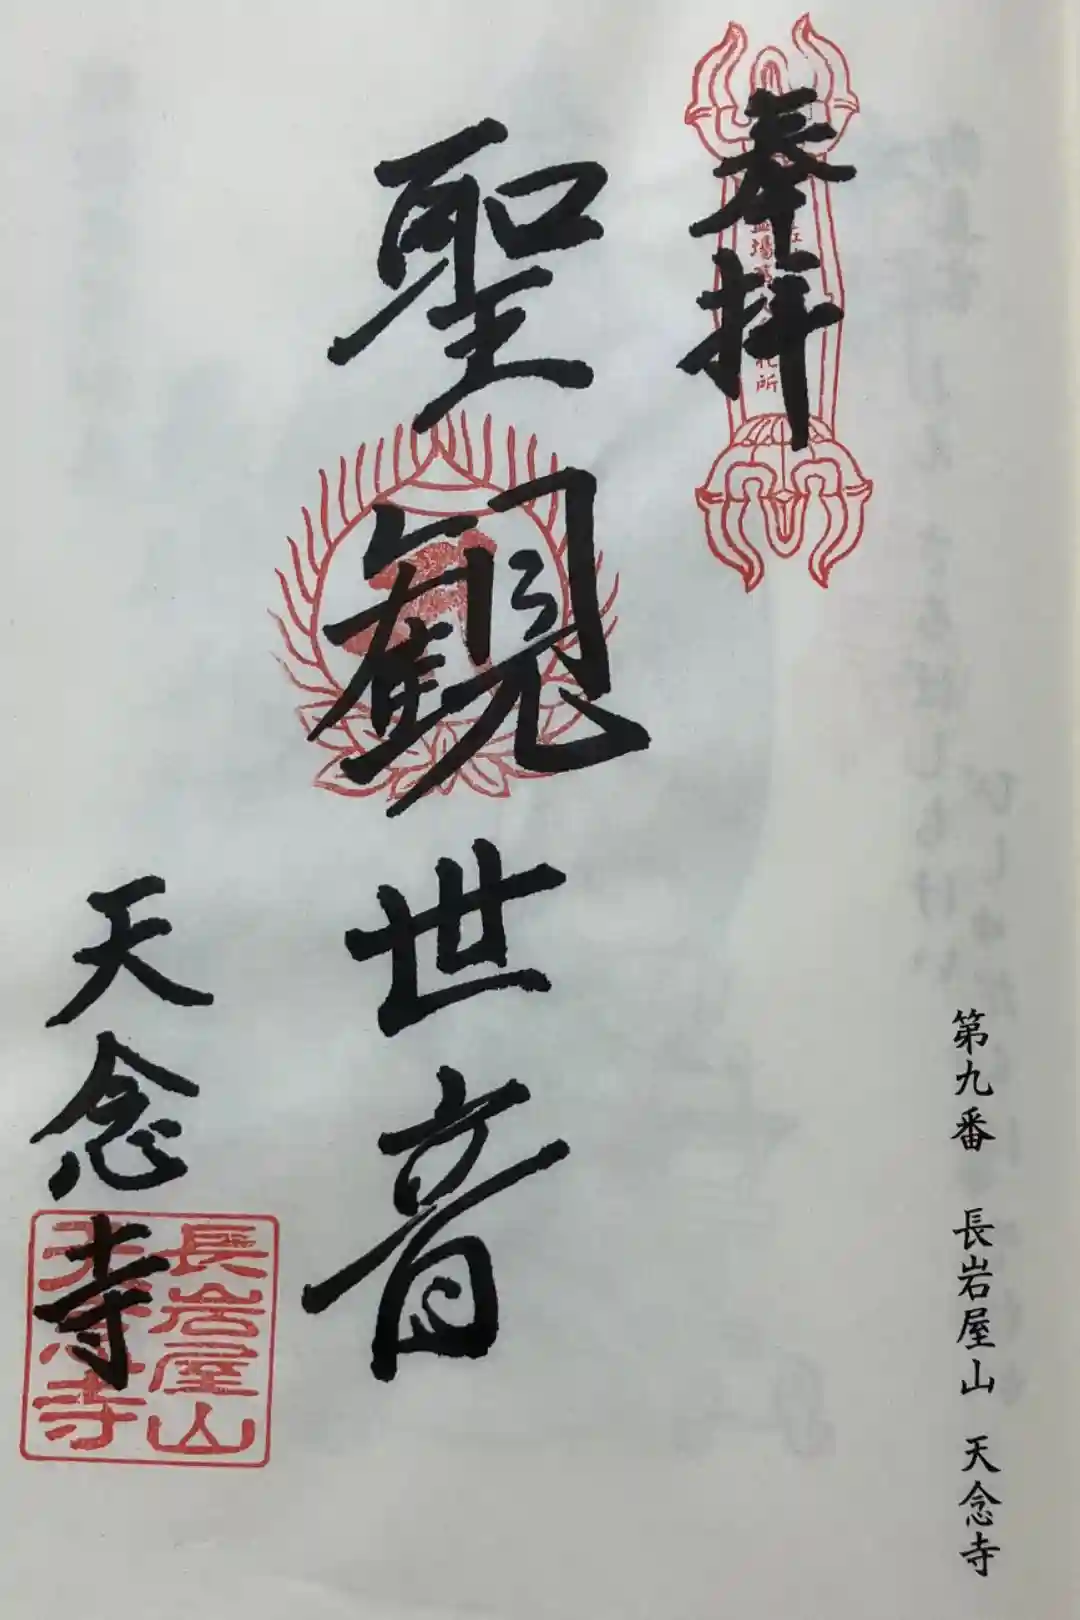 第九番 長岩屋山 天念寺
奉拝
札所
聖観世音
天念寺
長岩屋山
天念寺